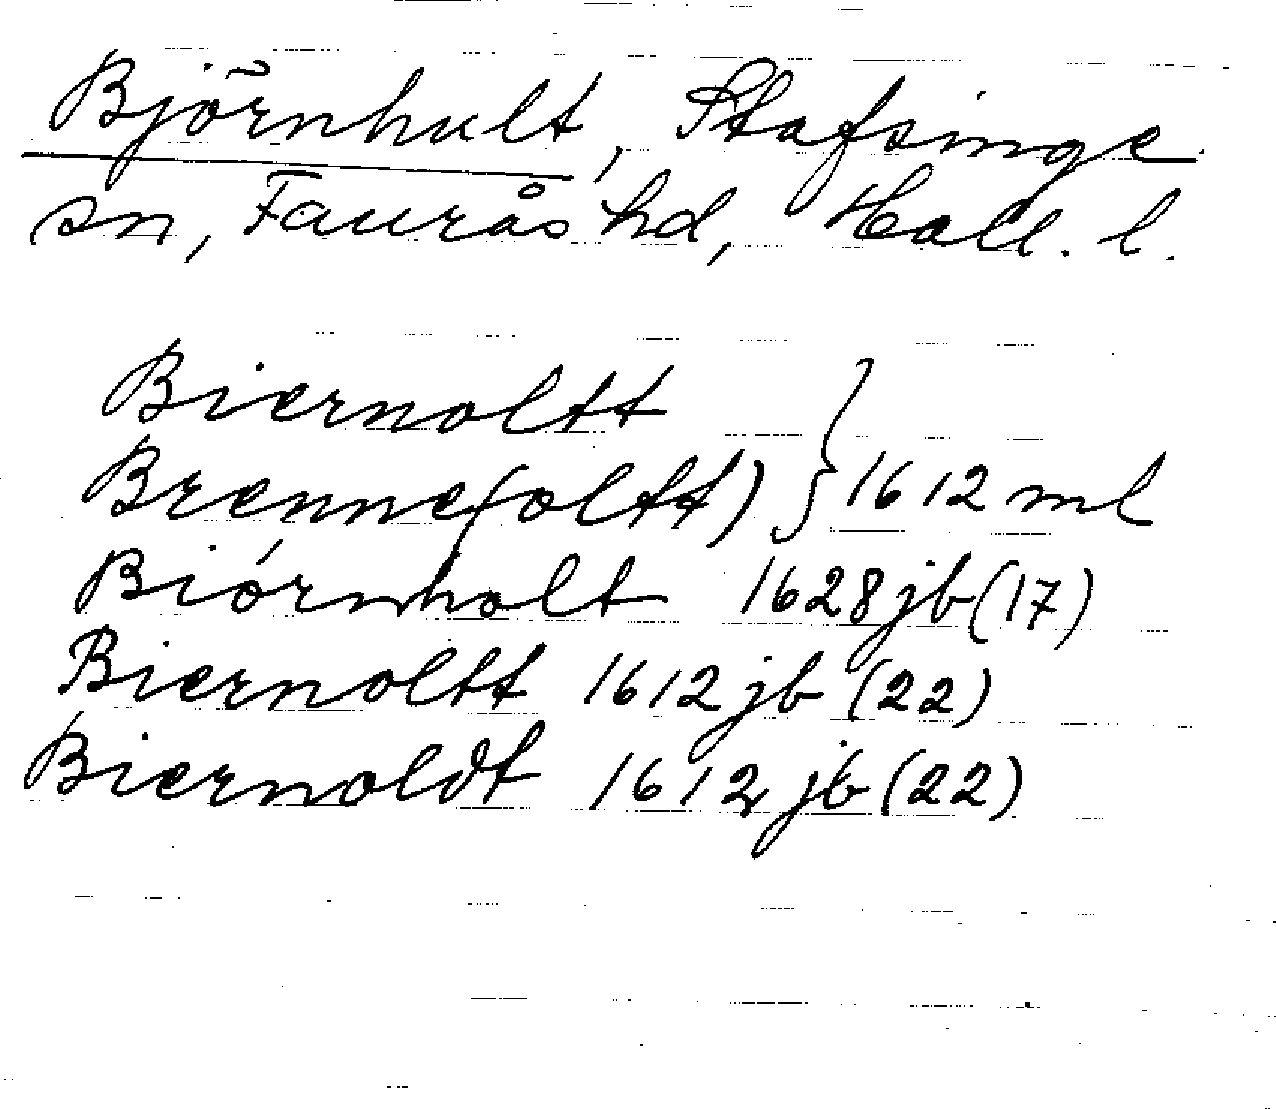 Björnhult, Stafsinge
sn, Faurås hd, Hall. l.
Biernoltt
Brenne(oltt) } 1612 ml
Biórnholt 1628 jb (17)
Biernoltt 1612 jb (22)
Biernoldt 1612 jb (22)